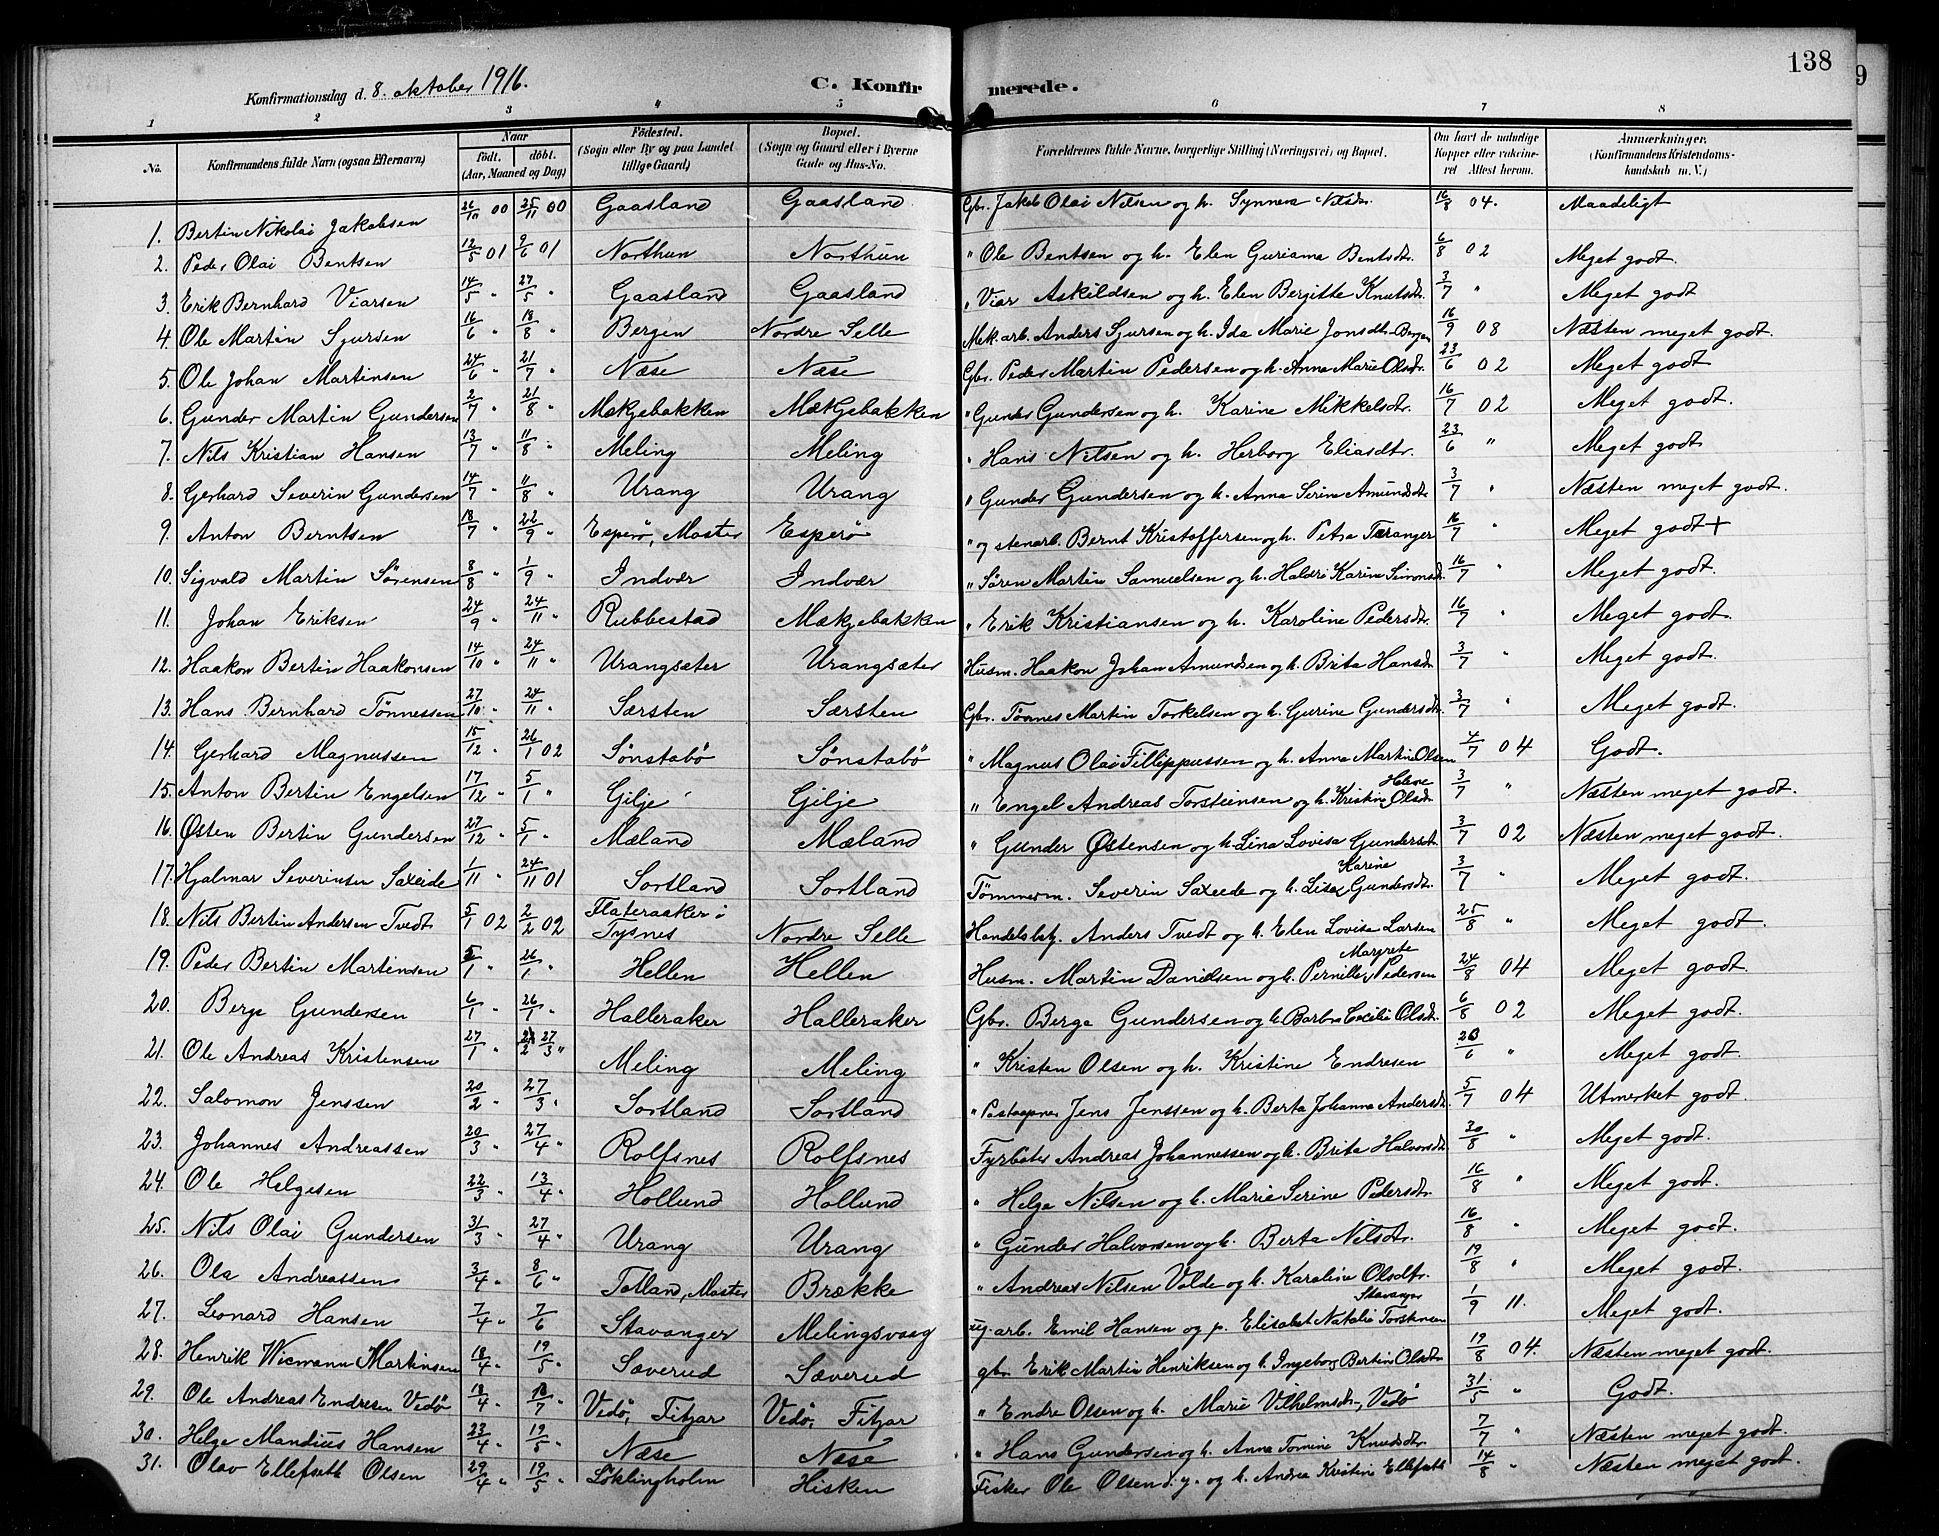 138
9
Konfirmationsdag d. 8. oktober 1916.
C. Konfirmerede.
1 2 3 4 5 6 7 8
No. Konfirmandens fulde Navn (ogsaa Efternavn) Naar født. døbt. (Aar, Maaned og Dag) Fødested. (Sogn eller By og paa Landet tillige Gaard) Bopæl. (Sogn og Gaard eller i Byerne Gade og Hus-No. Forældrenes fulde Navne, borgerlige Stilling (Næringsvei) og Bopæl. Om havt de naturlige Kopper eller vakcineret Attest herom. Anmærkninger. (Konfirmandens Kristendomskundskab m. V.)
1. Bertin Nikolai Jakobsen 26/10 00 25/11 00 Gaasland Gaasland Gbr. Jakob Olai Nilsen og h. Synneva Nilsdr. 16/8 04. Maadeligt
2. Peder Olai Bentsen 12/5 01 9/6 01 Northun Northun " Ole Bentsen og h. Elen Gurianna Bentsdtr. 6/8 02 Meget godt.
3. Erik Bernhard Viarsen 14/5 " 27/5 " Gaasland Gaasland " Viar Askildsen og h. Elen Bergitte Knutsdtr. 3/7 " Meget godt
4. Ole Martin Sjursen 16/6 " 18/8 " Bergen Nordre Selle Mek. arb. Anders Sjursen og h. Ida Marie Jonsdtr. Bergen 16/9 08 Næsten meget godt.
5. Ole Johan Martinsen 24/6 " 21/7 " Næse Næse Gbr. Peder Martin Pedersen og h. Anna Marie Olsdtr. 23/6 02 Meget godt
6. Gunder Martin Gundersen 2/7 " 21/8 " Mækjebakken Mækjebakken " Gunder Gundersen og h. Karine Mikkelsdtr. 16/7 02 Meget godt.
7. Nils Kristian Hansen 13/7 " 11/8 " Meling Meling " Hans Nilsen og h. Herborg Eliasdtr. 23/6 " Meget godt.
8. Gerhard Severin Gundersen 14/7 " 11/8 " Urang Urang " Gunder Gundersen og h. Anna Serine Amundsdtr 3/7 " Næsten meget godt.
9. Anton Berntsen 18/7 " 22/9 " Esperø, Moster Esperø " og stenarb. Bernt Kristoffersen og h. Petra Taranger 16/7 " Meget godt +
10. Sigvald Martin Sørensen 8/8 " 1/9 " Indvær Indvær " Søren Martin Samuelsen og h. Haldri Karine Simonsdr. 16/7 " Meget godt.
11. Johan Eriksen 24/9 " 24/11 " Rubbestad Mækjebakken " Erik Kristiansen og h. Karoline Pedersdtr. 16/7 " Meget godt.
12. Haakon Bertin Haakonsen 14/10 " 24/11 " Urangsæter Urangsæter Husm. Haakon Johan Amundsen og h. Brita Hansdr. 3/7 " Meget godt.
13. Hans Bernhard Tønnessen 27/10 " 24/11 " Særsten Særsten Gbr. Tønnes Martin Torkelsen og h. Gurine Gundersdtr. 3/7 " Meget godt.
14. Gerhard Magnussen 15/12 " 26/1 02 Sønstabø Sønstabø " Magnus Olai Fillippussen og h. Anna Martine Olsen 4/7 04 Godt.
15. Anton Bertin Engelsen 17/12 " 5/1 " Gilje Gilje " Engel Andreas Torsteinsen og h. Kristine Helene Olsdr. 3/7 " Næsten meget godt.
16. Østen Bertin Gundersen 27/12 " 5/1 " Mæland Mæland " Gunder Østensen og h. Lina Lovisa Gundersdt. 3/7 02 Næsten meget godt.
17. Hjalmar Severinsen Saxeide 1/11 " 24/11 01 Sortland Sortland Tømmerm. Severin Saxeide og h. Lisa Karine Gundersdtr. 3/7 " Meget godt.
18. Nils Bertin Andersen Tvedt 5/1 02 2/2 02 Flateraaker i Tysnes Nordre Selle Handelsbtj. Anders Tvedt og h. Elen Lovisa Larsen 25/8 " Meget godt.
19. Peder Bertin Martinsen 5/1 " 26/1 " Hellen Hellen Husm. Martin Danielsen og h. Pernille Margrete Pedersen 24/8 04 Meget godt.
20. Berge Gundersen 6/1 " 26/1 " Halleraker Halleraker Gbr. Berge Gundersen og h. Barbra Cecilie Olsdr. 6/8 02 Meget godt.
21. Ole Andreas Kristensen 27/1 " 27/3 " Meling Meling " Kristen Olsen og h. Kristine Endresen 23/6 " Meget godt.
22. Salomon Jenssen 20/2 " 27/3 " Sortland Sortland " Postaapner Jens Jenssen og h. Berta Johanna Andersdt. 5/7 04 Utmerket godt.
23. Johannes Andreassen 20/3 " 27/4 " Rolfsnes Rolfsnes Fyrbøter Andreas Johannessen og h. Brita Halvorsdt. 30/8 " Meget godt.
24. Ole Helgesen 22/3 " 13/4 " Hollund Hollund " Helge Nilsen og h. Marie Serine Pedersdtr. 16/8 " Meget godt.
25. Nils Olai Gundersen 31/3 " 27/4 " Urang Urang " Gunder Halvorsen og h. Berta Nilsdtr. 16/8 " Meget godt.
26. Ola Andreassen 3/4 " 8/6 " Totland, Moster Brække " Andreas Nilsen Volde og h. Karoline Olsdtr. 19/8 " Meget godt.
27. Leonard Hansen 7/4 " 7/6 " Stavanger Melingsvaag arb. Emil Hansen og p. Elisabet Natalie Torstensen Stavanger 1/9 11. Meget godt.
28. Henrik Wiemann Martinsen 18/4 " 19/5 " Sæverud Sæverud gbr. Erik Martin Henriksen og h. Ingeborg Bertine Olsdtr 19/8 04. Næsten meget godt.
29. Ole Andreas Endresen Vedø 18/4 " 18/7 " Vedø, Fitjar Vedø, Fitjar " Endre Olsen og h. Marie Vilhelmsdtr, Vedø 31/5 " Godt.
30. Helge Mandius Hansen 23/4 " 19/5 " Næse Næse " Hans Gundersen og h. Anna Tomine Knudsdtr. 7/7 " Næsten meget godt.
31. Olav Ellefseth Olsen 29/4 " 19/5 " Løklingholm Hisken Fisker Ole Olsen d. y. og h. Andrea Kristine Ellefseth 14/8 " Næsten meget godt.